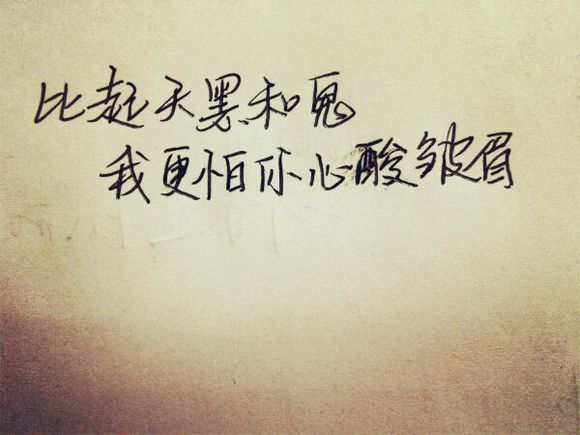 比起天黑和鬼
我更怕你心酸皱眉